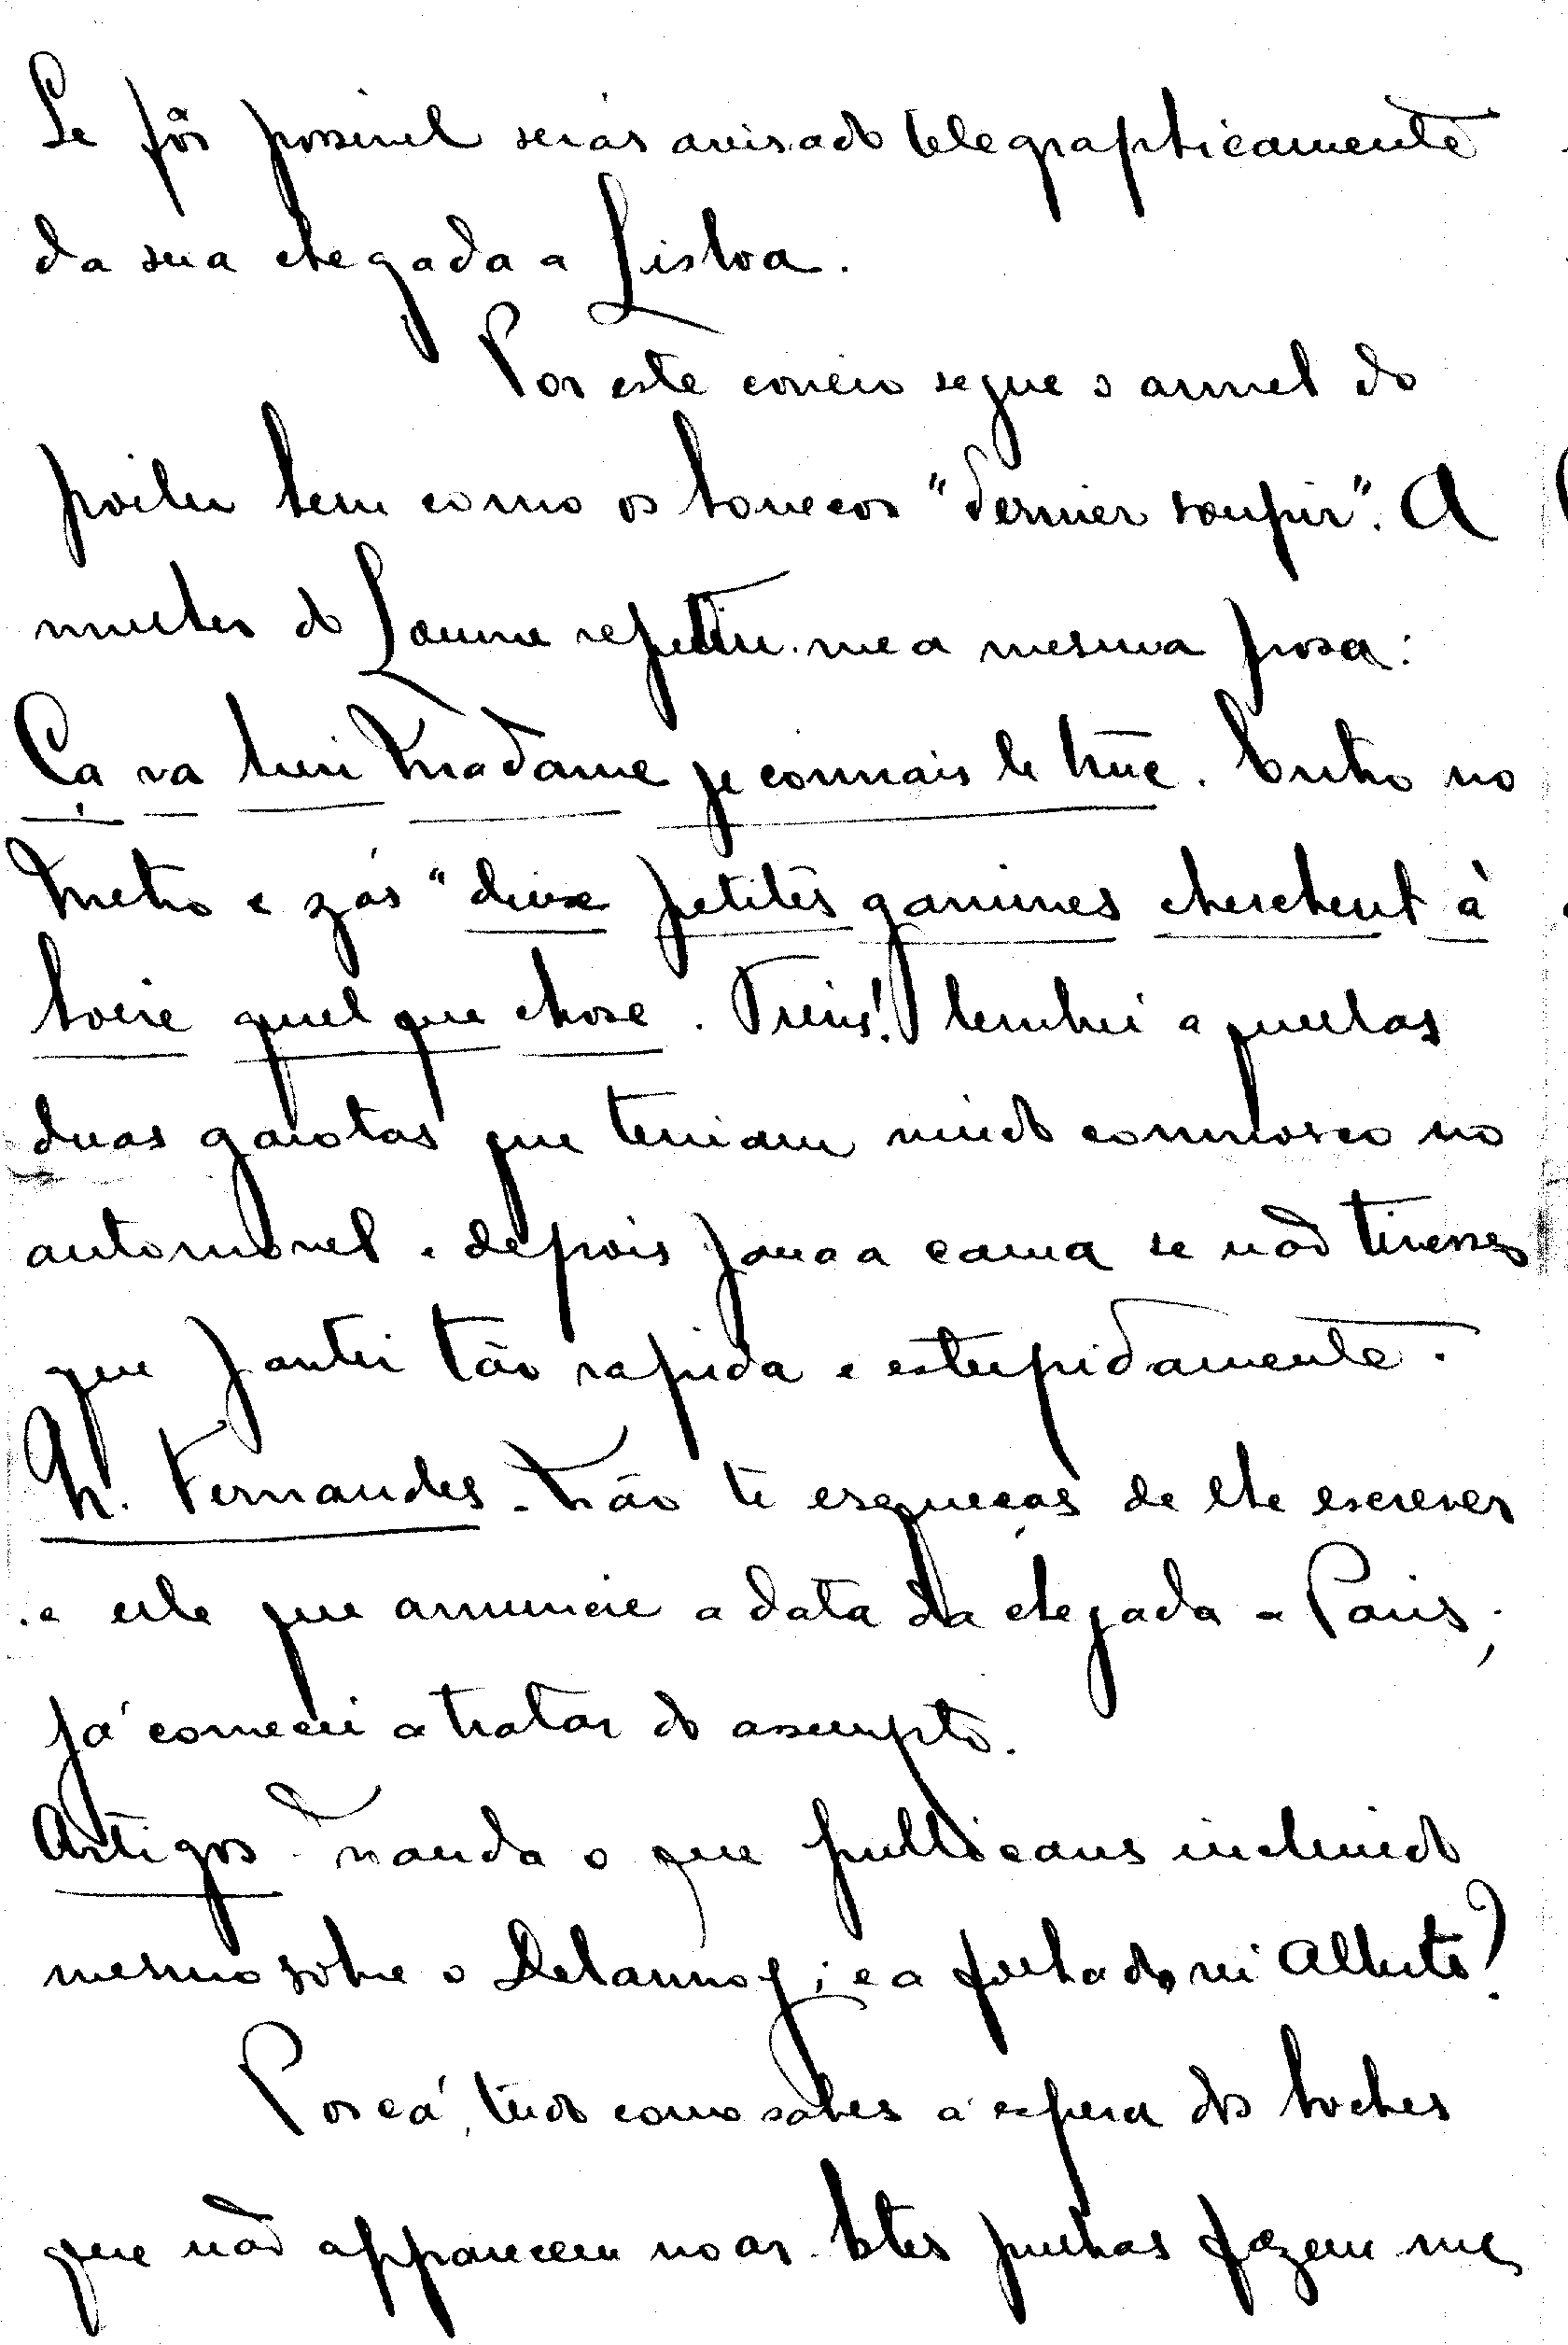 Se fôr possivel serás avisado telegraphicamente
da sua chegada a Lisboa.
Por este correio segue o annel do
poilu bem como os bonecos "dernier soupir". A
mulher do repetiu-me a mesma prosa:
Ça va bien Madame je connais le truc. Entro no
Metro e zás "deux petites gamines cherchent à
boire quelque chose. Treius! lembrei aquellas
duas garotas que teriam vindo comnosco no
automovel e depois para a cama se não tivesses
que jantei tão rapida e estupidamente.
M. Fernandes - Não te esqueças de lhe escrever
e elle que annuncie a data da chegada a Paris;
já comecei a tratar do assumpto.
Artigos - Manda o que publicares incluindo
mesmo sobre o Delannoy; e a folha do rei Alberto?
Por cá, tudo como sabes á espera dos boches
que não apparecem no ar. Estes pulhas fazem-me